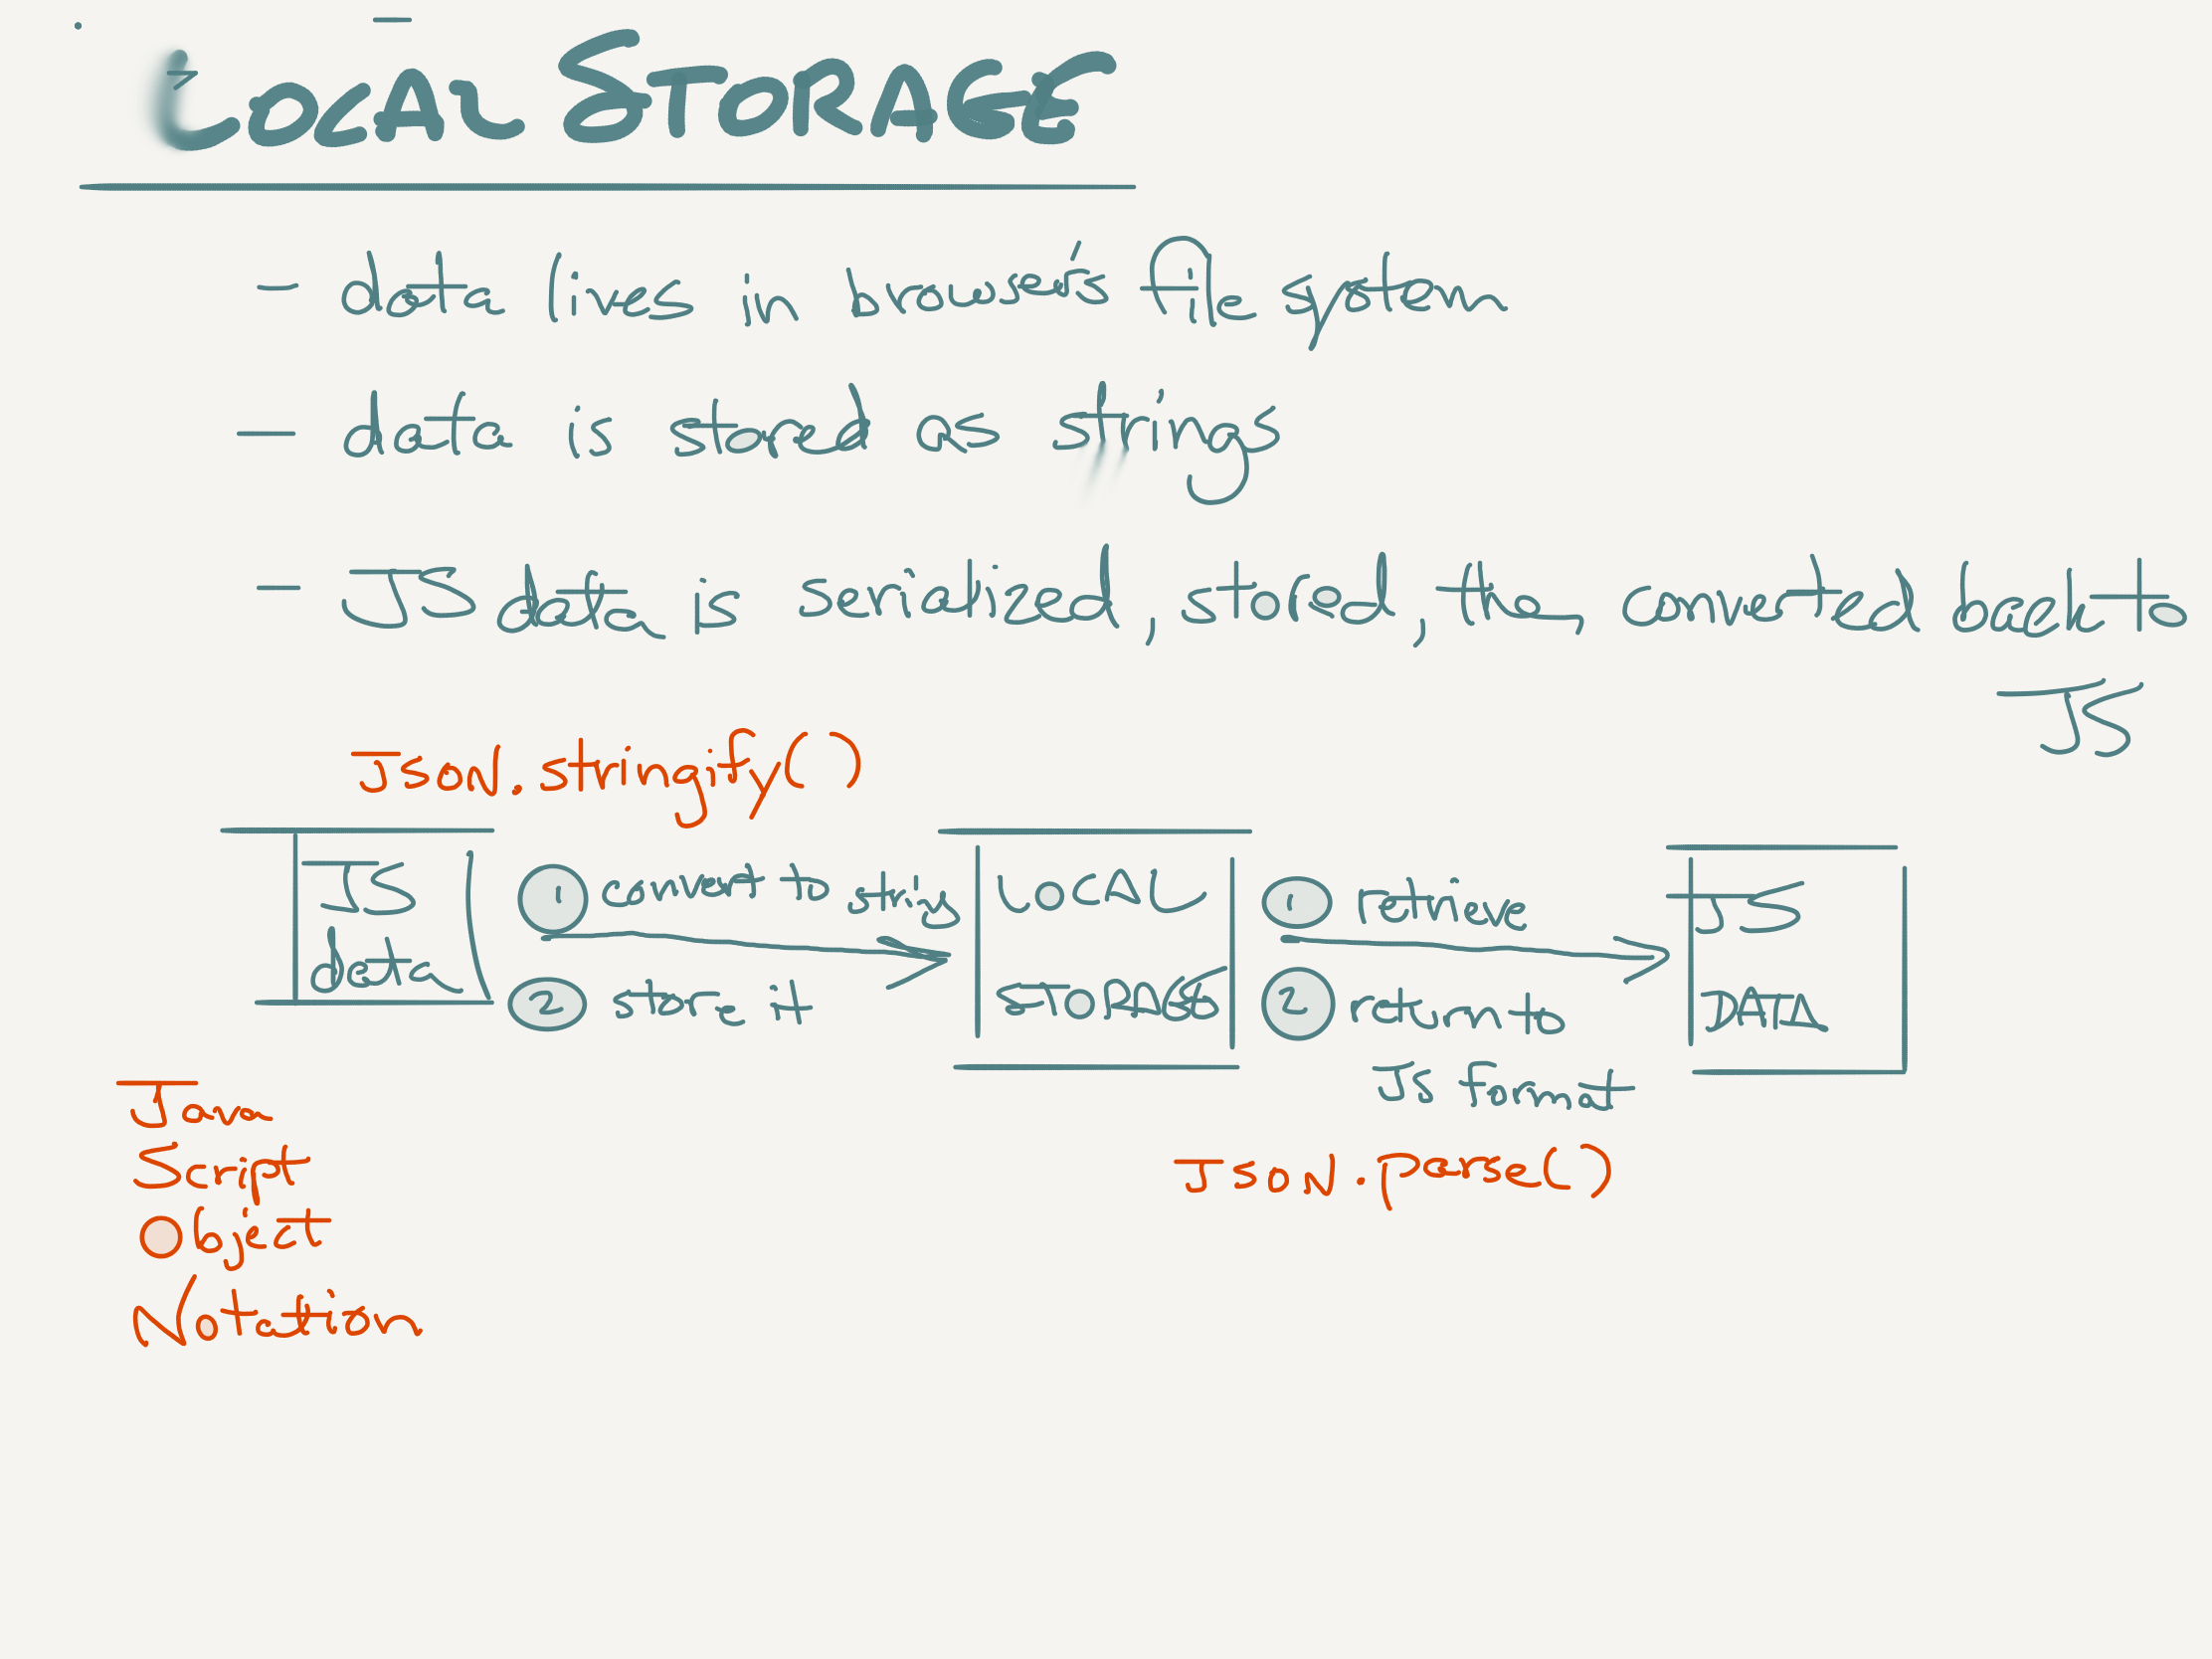 LOCAL STORAGE
- data lives in browser's file system
- data is stored as strings
- JS data is serialized, stored, then converted back to
JS
JSON.stringify()
JS
data
1 convert to string
2 store it
LOCAL
STORAGE
1 retrieve
2 return to
JS format
JS
DATA
JSON.parse()
Java
Script
Object
Notation